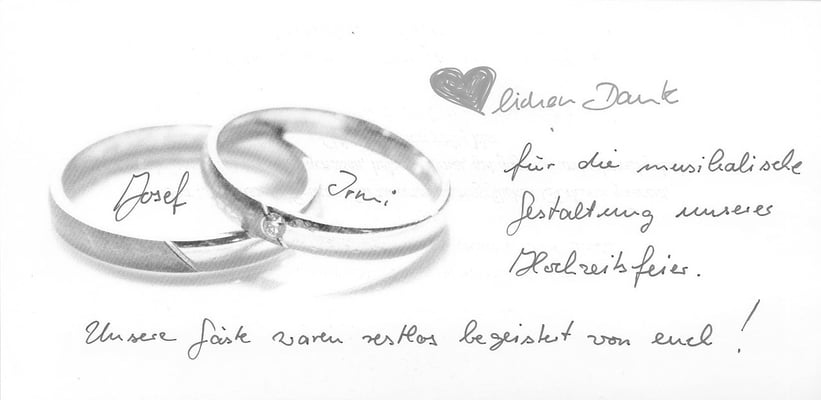 lichen Dank
für die musikalische
Gestaltung unserer
Hochzeitsfeier.
Josef Irmi
Unsere Gäste waren restlos begeistert von euch!